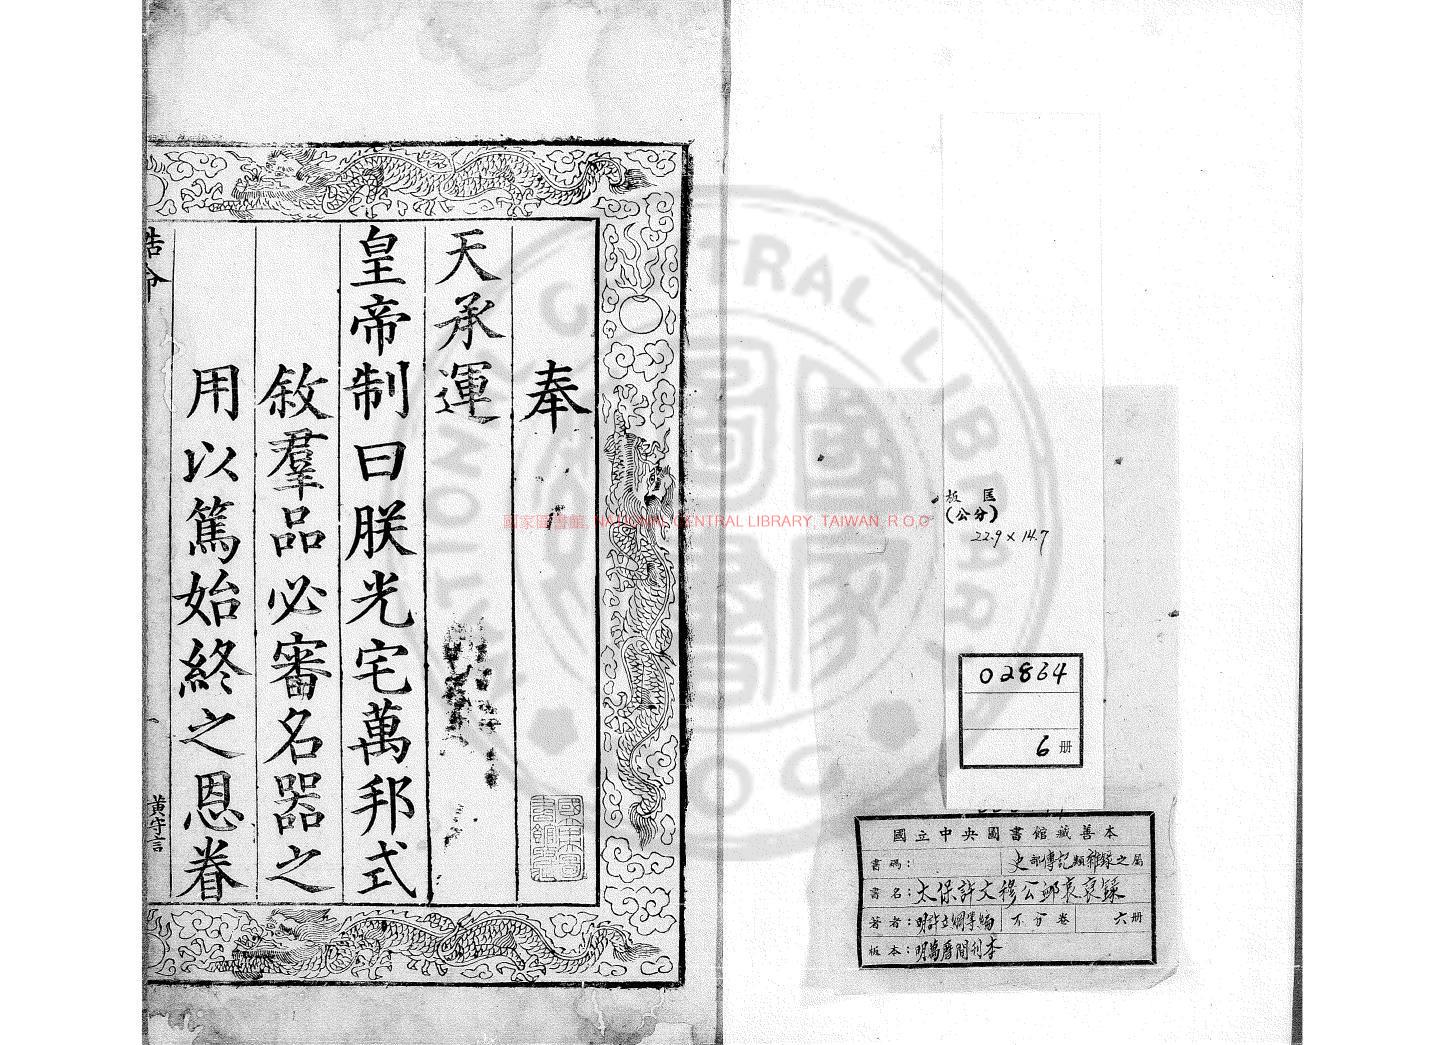 奉
天承運
皇帝制曰朕光宅萬邦式
敘羣品必審名器之
用以篤始終之恩眷
誥命
黃守言
國家圖書館, NATIONAL CENTRAL LIBRARY, TAIWAN, R.O.C
NATIONAL CENTRAL LIBRARY
R O C
板匡
(公分)
22.9 × 14.7
02864
6 册
國立中央圖書館藏善本
書碼： 史部傳記類雜錄之屬
書名：太保許文穆公邮哀錄
著者：明許立綱等編 不分卷 六册
版本：明萬曆間刊本